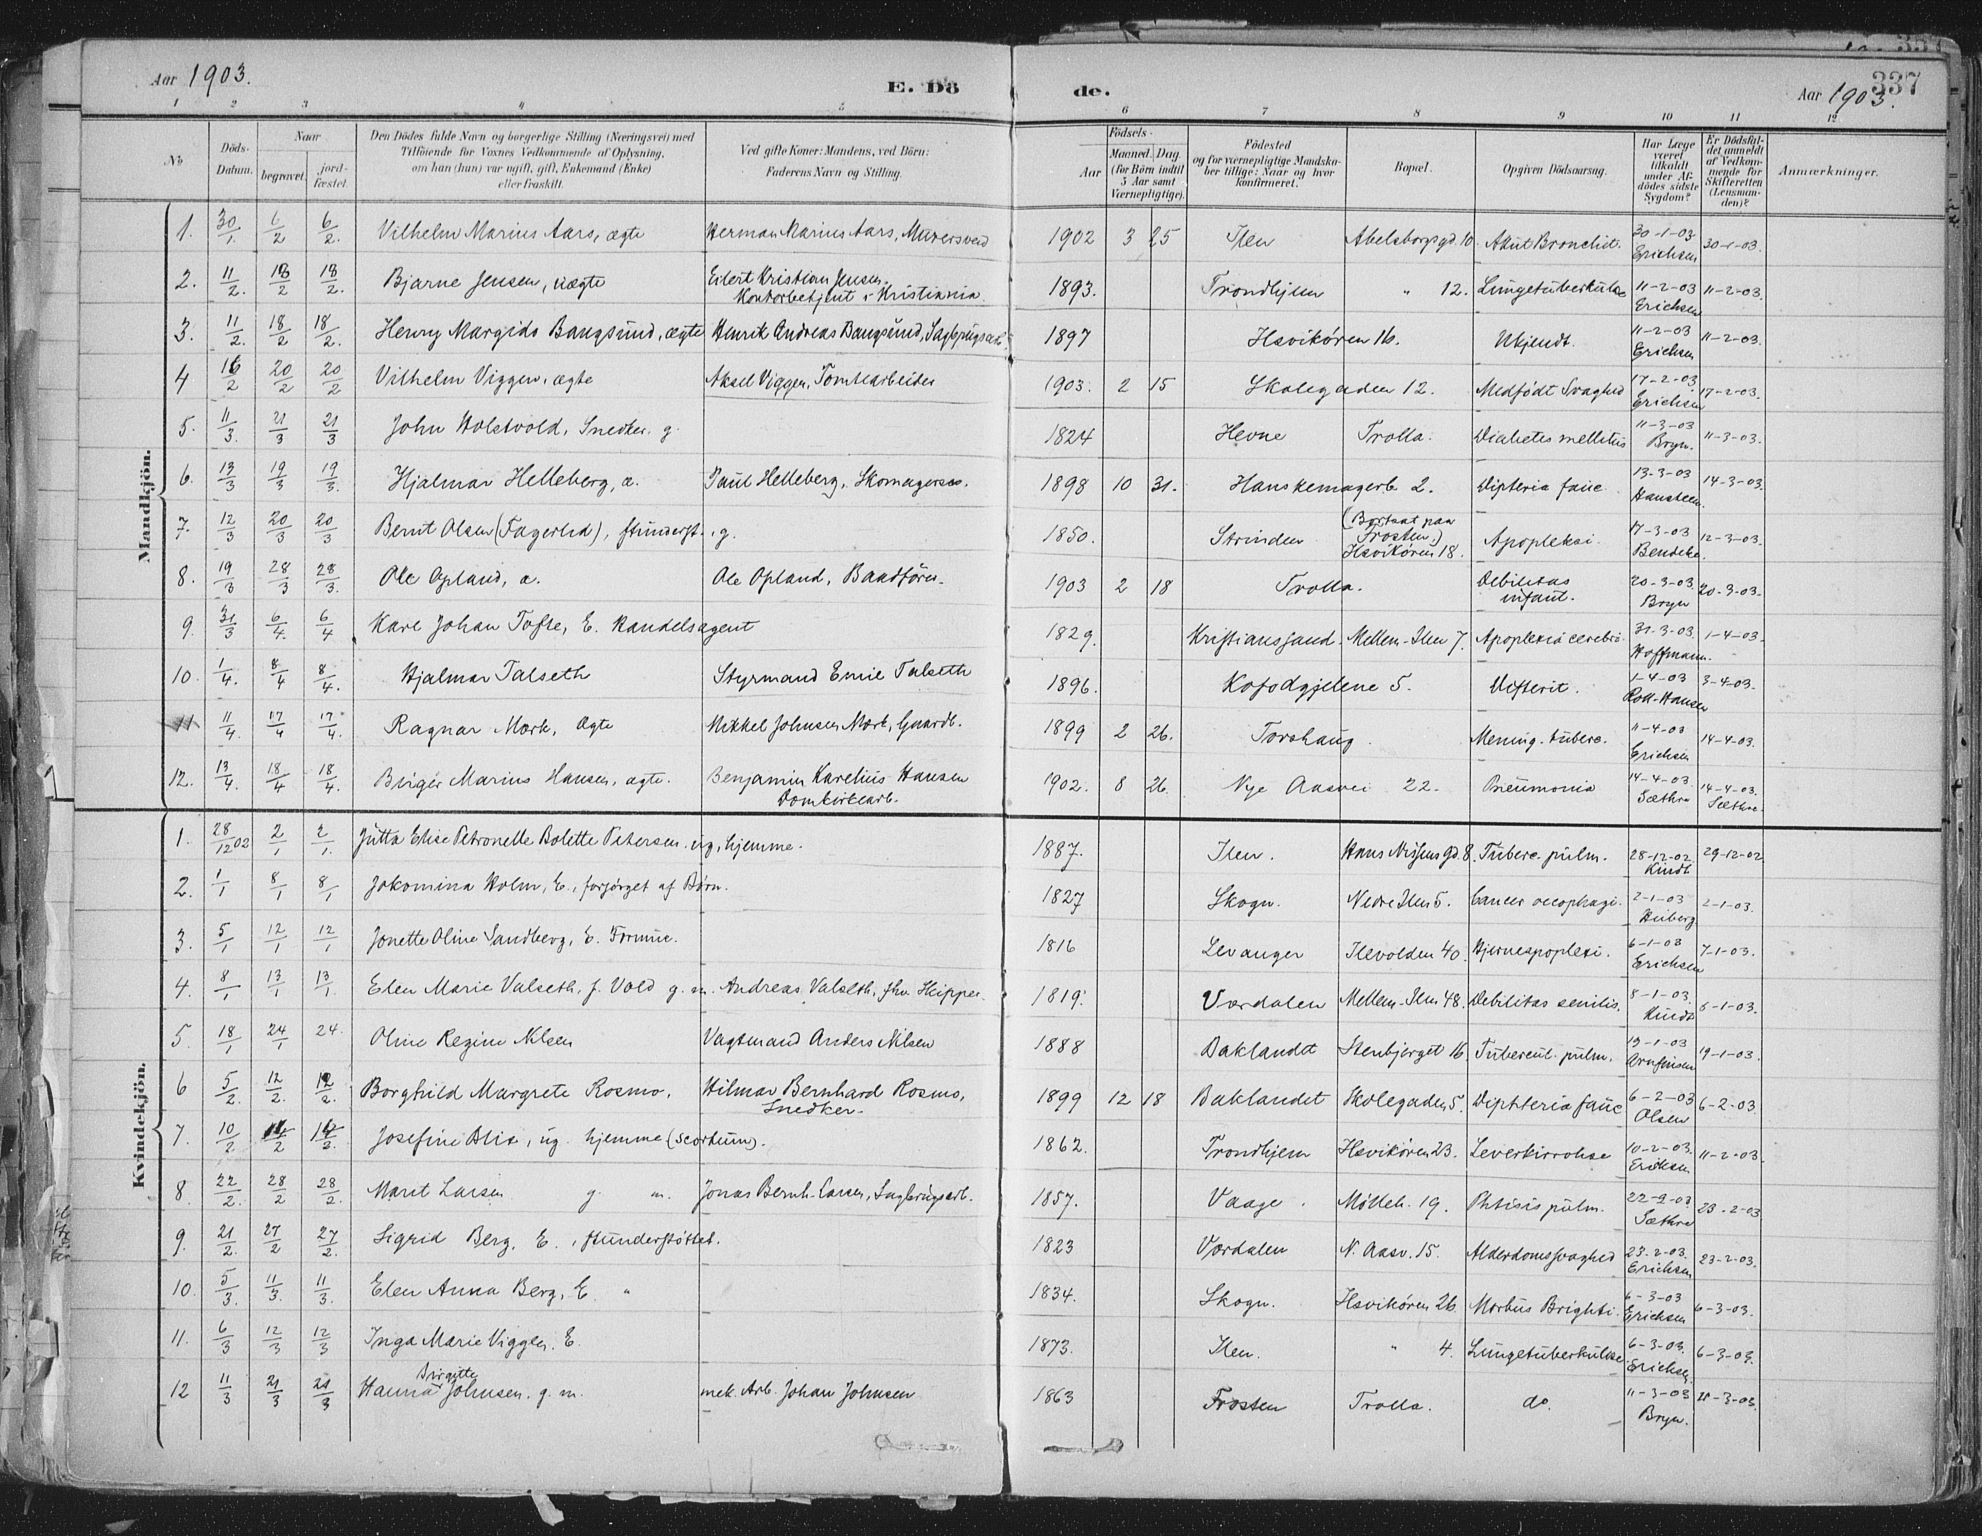 Aar 1903. E. Dö de. Aar 1903. 337
1 2 3 4 5 6 7 8 9 10 11 12
No
Döds-Datum.
Naar
begravet.
jordfæstet.
Den Dödes fulde Navn og borgerlige Stilling (Næringsvei) med
Tilföiende for Voxnes Vedkommende af Oplysning,
om han (hun) var ugift, gift, Enkemand (Enke)
eller fraskilt.
Ved gifte Koner: Mandens, ved Börn:
Faderens Navn og Stilling.
Födsels-
Aar
Maaned. Dag
(for Börn indtil
5 Aar samt
Værnepligtige).
Födested
og for værnepligtige Mandskaber tillige: Naar og hvor
konfirmeret.
Bopæl.
Opgiven Dödsaarsag.
Har Læge været tilkaldt under Afdödes sidste Sygdom?
Er Dödsfaldet anmeldt af Vedkommende for Skifteretten (Lensmanden)?
Anmærkninger.
Mandkjön.
1. 30/1. 6/2 6/2. Vilhelm Marius Aars, ægte Herman Marius Aars, Murersvend 1902 3 25 Ilen Abelsborggd. 10. Akut Bronchit. 30-1-03 Erichsen 30-1-03.
2. 11/2. 18/2 18/2. Bjarne Jensen, uægte Eilert Kristian Jensen, Kontorbetjent i Kristiania. 1893. Trondhjem " 12. Lungetuberkulose 11-2-03 Erichsen 11-2-03.
3. 11/2. 18/2 18/2. Henry Margido Bangsund, ægte Henrik Andreas Bangsund, Sagbrugsarb. 1897 Ilsvikören 16. Ukjendt. 11-2-03 Erichsen 11-2-03.
4 16/2 20/2 20/2 Vilhelm Viggen, ægte Aksel Viggen, Tomtearbeider 1903. 2 15 Skolegaden 12. Medfödt Svaghed 17-2-03 Erichsen 17-2-03.
5. 11/3. 21/3 21/3 John Holstvold, Snedker. g. 1824 Hevne Trolla. Diabetes mellitus 11-3-03 Bryn. 11-3-03.
6. 13/3 19/3 19/3. Hjalmar Helleberg, æ. Paul Helleberg, Skomagersv. 1898 10 31. Hanskemagerb 2. Dipteria fauc. 13-3-03 Hansteen 14-3-03.
7. 12/3 20/3 20/3 Bernt Olsen (Fagerlid), fhunderst., g. 1850. Strinden (Bortsat paa Frosten) Ilsvikören 18. Apopleksi. 17-3-03 Bendeke. 12-3-03.
8. 19/3 28/3 28/3. Ole Opland, æ. Ole Opland, Baadförer. 1903 2 18 Trolla. Debilitas infant. 20-3-03. Bryn 20-3-03.
9. 31/3 6/4. 6/4 Karl Johan Tofte, E. Handelsagent 1829. Kristianssand. Mellem-Ilen 7. Apoplexia cerebri 31-3-03. Hoffmann. 1-4-03.
10. 1/4. 8/4 8/4. Hjalmar Talseth Styrmand Emil Talseth 1896. Kofodgjelene 5. Difterit. 1-4-03 Roll-Hansen 3-4-03.
11 11/4. 17/4 17/4. Ragnar Mork, Ægte Mikkel Johnsen Mork, Gaardb. 1899 2 26. Torshaug. Mening. tuberc. 11-4-03 Erichsen 14-4-03.
12. 13/4. 18/4 18/4. Birger Marius Hansen, ægte. Benjamin Karelius Hansen Domkirkearb. 1902. 8 26. Nye Aasvei 22. Pneumonia 14-4-03 Sæthre 14-4-03. Sæthre.
Kvindekjön.
1. 28/12 02 2/1 2/1. Jutta Elise Petronelle Bolette Petersen. ug. hjemme. 1887. Ilen. Hans Nissens gd. 8. Tuberc. pulm. 28-12-02. Kindt 29-12-02
2. 1/1 8/1 8/1 Jakomina Holm, E., forsørget af Børn. 1827 Skogn. Nedre Ilen 5. Cancer oecophagi. 2-1-03 2-1-03.
3. 5/1 12/1 12/1 Jonette Oline Sandberg, E. Formue. 1816 Levanger Ilevolden 40. Hjerneapoplexi. 6-1-03 Erichsen 7-1-03.
4. 8/1 13/1 13/1. Elen Marie Valseth, f. Vold g. m. Andreas Valseth, fhv. Skipper. 1819. Værdalen Mellem-Ilen 48. Debilitas senilis. 8-1-03. Kindt 8-1-03.
5. 18/1 24/1 24. Oline Regine Nilsen Vagtmand Anders Nilsen 1888 Baklandet Stenbjerget 16 Tubercul. pulm. 19-1-03 Arnfinsen 19-1-03.
6 5/2. 12/2. 12/2. Borghild Margrete Rosmo. Hilmar Bernhard Rosmo, Snedker. 1899 12 18 Baklandet Skolegaden 5. Diphteria fauc 6-2-03 Olsen 6-2-03.
7. 10/2 14/2 14/2. Josefine Alis, ug. hjemme (scortum). 1862. Trondhjem Ilsvikören 23. Leverkirrohse 10-2-03. Eriksen 11-2-03.
8 22/2. 28/2 28/2. Marit Larsen g. m. Jonas Bernh. Larsen, Sagbrugsarb. 1857. Vaage. Mölleb. 19. Phtisis pulm. 22-2-03 Sæthre 23-2-03
9. 21/2. 27/2 27/2. Sigrid Berg, E., fhunderstøttet. 1823 Værdalen N. Aasv. 15. Alderdomssvaghed 23-2-03. Erichsen 23-2-03.
10. 5/3. 11/3. 11/3. Elen Anna Berg, E. " 1834. Skogn. Ilsvikören 26. Morbus Brighti. 6-3-03 Erichsen 6-3-03.
11. 6/3 12/3 12/3 Inga Marie Viggen, E. 1873. Ilen. " 4. Lungetuberkulose 6-3-03. Erichsen. 6-3-03.
12 11/3 21/3 21/3 Hanna Birgitte Johnsen. g. m. mek. Arb. Johan Johnsen 1863 Frosten Trolla. do. 11-3-03 Bryn. 21-3-03.